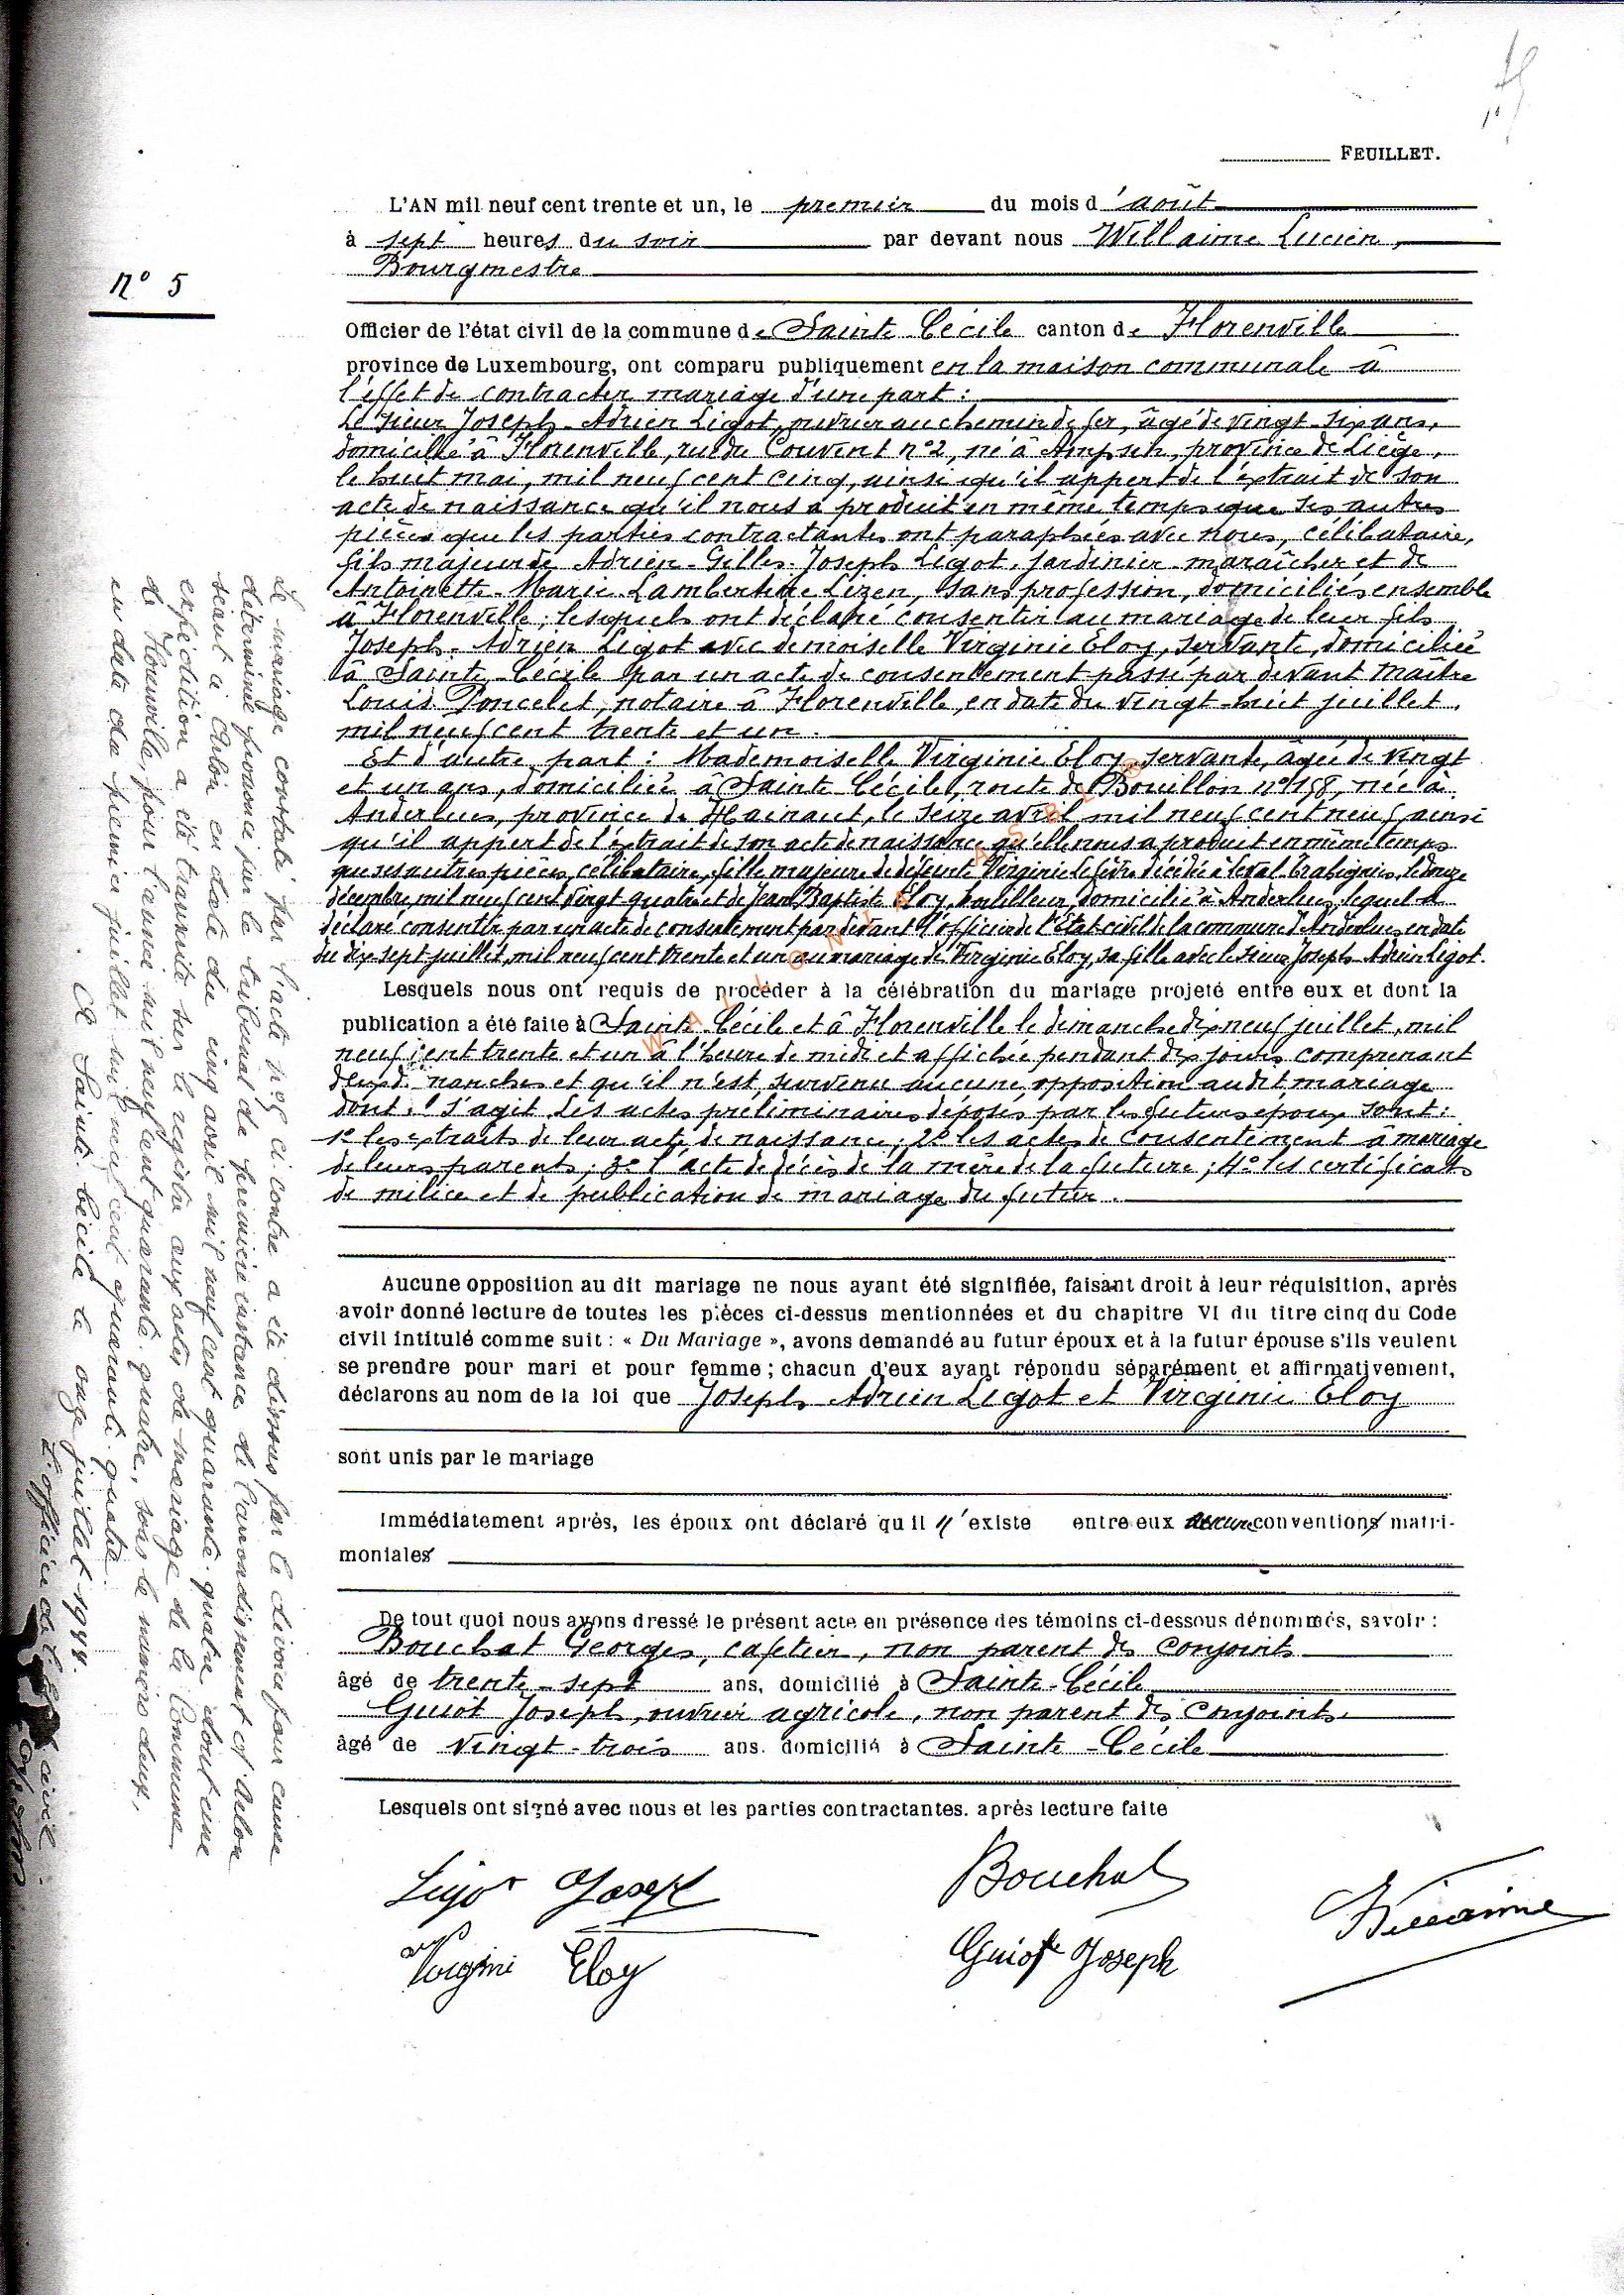 FEUILLET.
L'AN mil neuf cent trente et un, le premier du mois d'août
à sept heures du soir par devant nous Willaime Lucien,
Bourgmestre
n° 5
Officier de l'état civil de la commune de Sainte Cécile canton de Florenville
province de Luxembourg, ont comparu publiquement en la maison communale à
l'effet de contracter mariage d'une part :
Le sieur Joseph-Adrien Ligot, ouvrier au chemin de fer, âgé de vingt-six ans,
domicilié à Florenville, rue du Couvent n°2, né à Ampsin, province de Liège,
le huit mai, mil neuf cent cinq, ainsi qu'il appert de l'extrait de son
acte de naissance qu'il nous a produit en même temps que ses autres
pièces que les parties contractantes ont paraphées avec nous, célibataire,
fils majeur de Adrien-Gilles-Joseph Ligot, jardinier-maraîcher et de
Antoinette-Marie-Lambertine Lizen, sans profession, domiciliés ensemble
à Florenville ; lesquels ont déclaré consentir au mariage de leur fils
Joseph-Adrien Ligot avec demoiselle Virginie Eloy, servante, domiciliée
à Sainte-Cécile par un acte de consentement passé par devant Maître
Louis Poncelet, notaire à Florenville, en date du vingt-huit juillet,
mil neuf cent trente et un.
Et d'autre part : Mademoiselle Virginie Eloy, servante, âgée de vingt
et un ans, domiciliée à Sainte Cécile, route de Bouillon n°158, née à
Anderlues, province de Hainaut, le seize avril mil neuf cent neuf, ainsi
qu'il appert de l'extrait de son acte de naissance qu'elle nous a produit en même temps
que ses autres pièces, célibataire, fille majeure de défunte Virginie Lefèvre décédée à Leval-Trahegnies, le douze
décembre mil neuf cent vingt quatre et de Jean Baptiste Eloy, houilleur, domicilié à Anderlues, lequel a
déclaré consentir par un acte de consentement par devant l'officier de l'Etat-civil de la commune d'Anderlues en date
du dix-sept juillet, mil neuf cent trente et un au mariage de Virginie Eloy, sa fille avec le sieur Joseph-Adrien Ligot.
Lesquels nous ont requis de procéder à la célébration du mariage projeté entre eux et dont la
publication a été faite à Sainte-Cécile et à Florenville le dimanche dix neuf juillet, mil
neuf cent trente et un à l'heure de midi et affichée pendant dix jours comprenant
deux dimanches et qu'il n'est survenu aucune opposition audit mariage
dont il s'agit. Les actes préliminaires déposés par les futurs époux sont :
1° les extraits de leur acte de naissance ; 2° les actes de consentement à mariage
de leurs parents ; 3° l'acte de décès de la mère de la future ; 4° les certificats
de milice et de publication de mariage du futur.
Aucune opposition au dit mariage ne nous ayant été signifiée, faisant droit à leur réquisition, après
avoir donné lecture de toutes les pièces ci-dessus mentionnées et du chapitre VI du titre cinq du Code
civil intitulé comme suit : « Du Mariage », avons demandé au futur époux et à la futur épouse s'ils veulent
se prendre pour mari et pour femme ; chacun d'eux ayant répondu séparément et affirmativement,
déclarons au nom de la loi que Joseph-Adrien Ligot et Virginie Eloy
sont unis par le mariage
Immédiatement après, les époux ont déclaré qu'il n'existe entre eux aucune conventions matri-
moniales
De tout quoi nous avons dressé le présent acte en présence des témoins ci-dessous dénommés, savoir :
Bouchat Georges, cafetier, non parent des conjoints
âgé de trente-sept ans, domicilié à Sainte-Cécile
Guiot Joseph, ouvrier agricole, non parent des conjoints
âgé de vingt-trois ans. domicilié à Sainte-Cécile
Lesquels ont signé avec nous et les parties contractantes. après lecture faite
Ligot Joseph
Virginie Eloy
Bouchat
Guiot Joseph
Willaime
Le mariage constaté par l'acte n°5 ci-contre a été dissous par le divorce pour cause
déterminée prononcé par le tribunal de première instance de l'arrondissement d'Arlon
séant à Arlon en date du cinq avril mil neuf cent quarante-quatre dont une
expédition a été transcrite sur le registre aux actes de mariage de la Commune
de Florenville, pour l'année mil neuf cent quarante-quatre, sous le numéro deux,
en date du premier juillet mil neuf cent quarante-quatre.
A Sainte-Cécile le onze juillet 1944.
L'officier de l'état civil
WALLONIA ASBL ®